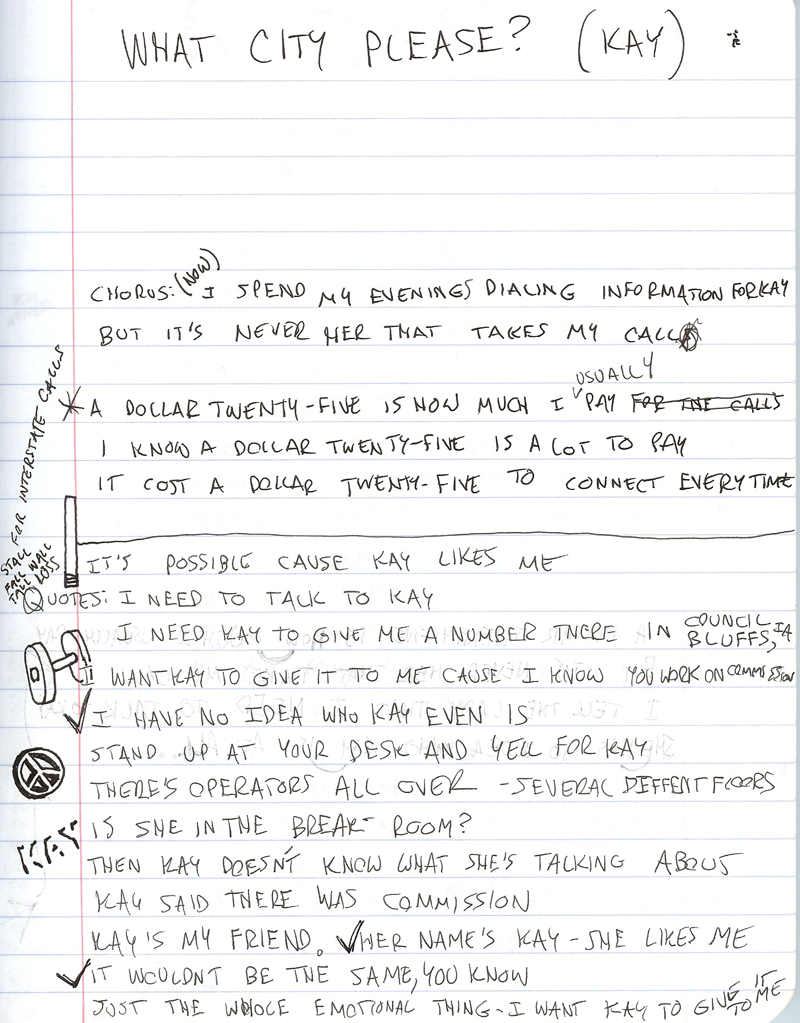 WHAT CITY PLEASE? (KAY)
CHORUS: (NOW) I SPEND MY EVENINGS DIALING INFORMATION FOR KAY
BUT IT'S NEVER HER THAT TAKES MY CALL
USUALLY
A DOLLAR TWENTY-FIVE IS HOW MUCH I PAY FOR THE CALLS
I KNOW A DOLLAR TWENTY-FIVE IS A LOT TO PAY
IT COST A DOLLAR TWENTY-FIVE TO CONNECT EVERYTIME
STALL FOR INTERSTATE CALLS
FALL WALL
TALL LOSS
IT'S POSSIBLE CAUSE KAY LIKES ME
QUOTES: I NEED TO TALK TO KAY
I NEED KAY TO GIVE ME A NUMBER THERE IN COUNCIL BLUFFS, IA
I WANT KAY TO GIVE IT TO ME CAUSE I KNOW YOU WORK ON COMMISSION
I HAVE NO IDEA WHO KAY EVEN IS
STAND UP AT YOUR DESK AND YELL FOR KAY
THERE'S OPERATORS ALL OVER - SEVERAL DIFFENT FLOORS
IS SHE IN THE BREAK-ROOM?
THEN KAY DOESN'T KNOW WHAT SHE'S TALKING ABOUT
KAY SAID THERE WAS COMMISSION
KAY'S MY FRIEND. HER NAME'S KAY - SHE LIKES ME
IT WOULDNT BE THE SAME, YOU KNOW
JUST THE WHOLE EMOTIONAL THING - I WANT KAY TO GIVE IT TO ME